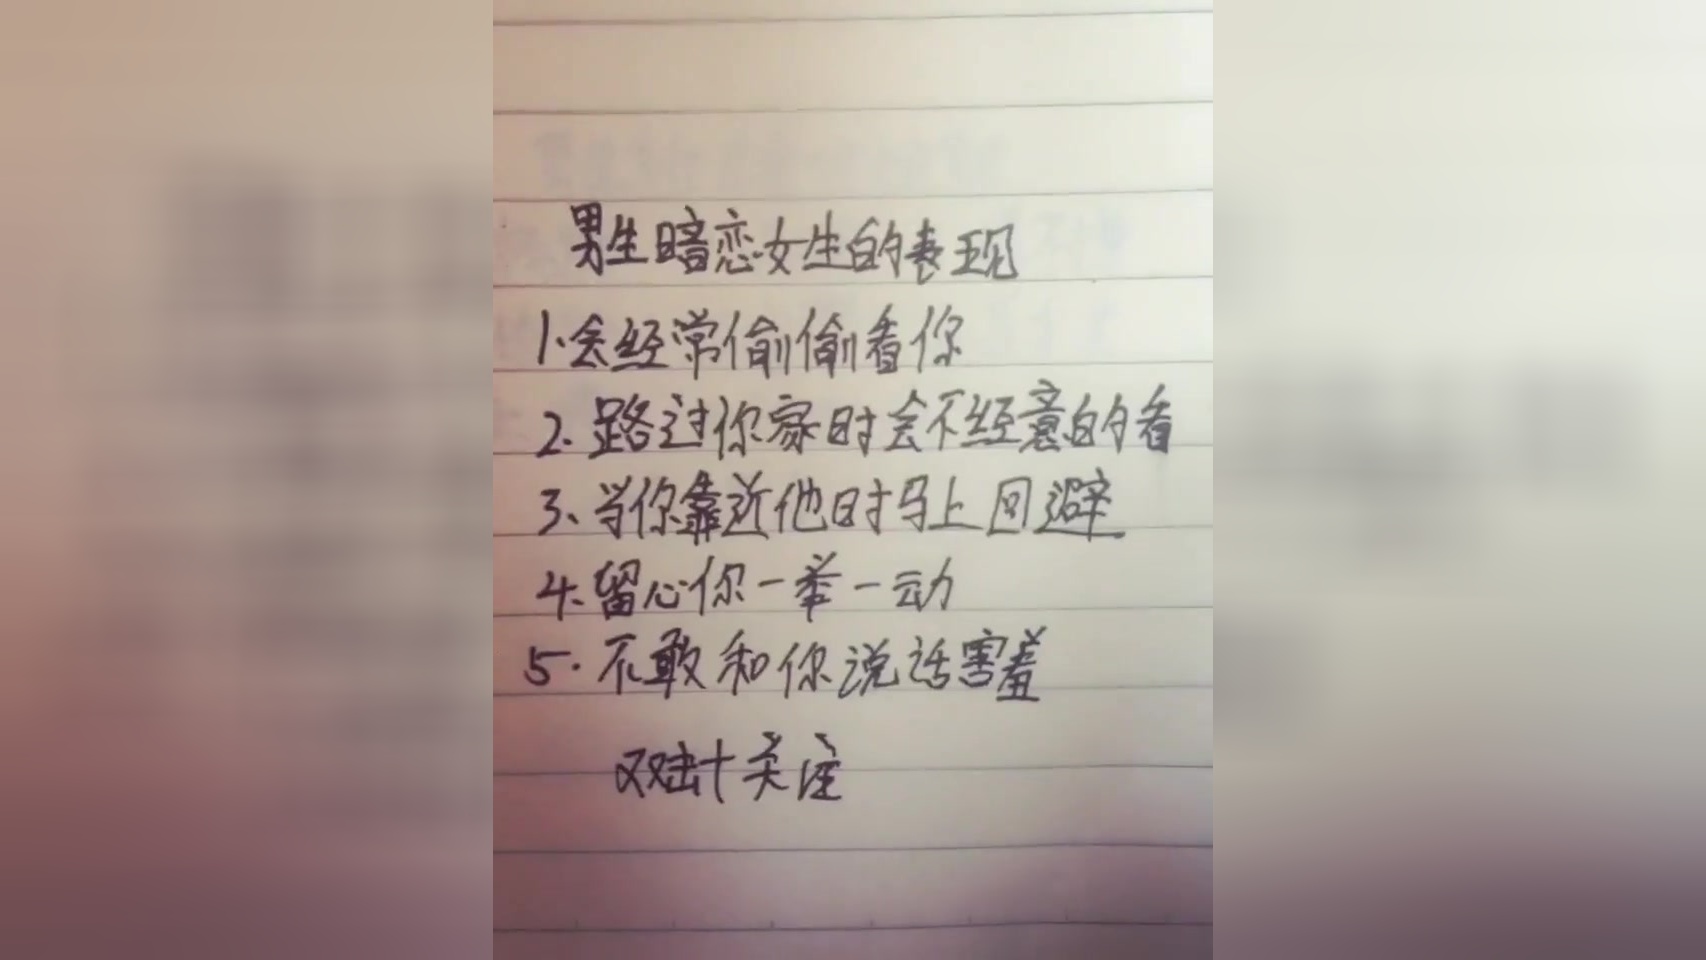 男生暗恋女生的表现
1.会经常偷偷看你
2.路过你家时会不经意的看
3、当你靠近他时马上回避
4、留心你一举一动
5.不敢和你说话害羞
双击+关注